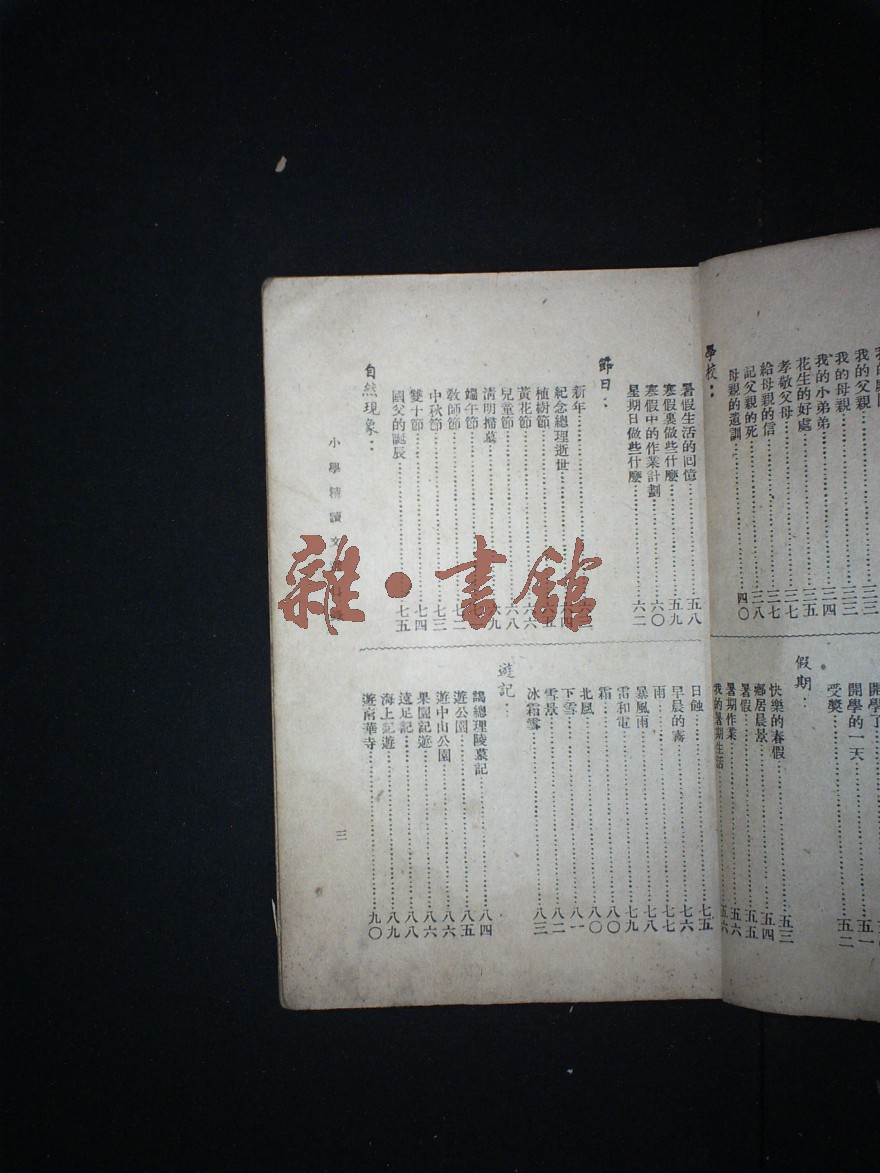 我的父親……三三
我的母親……三三
我的小弟弟……三四
花生的好處……三五
孝敬父母……三七
給母親的信……三七
記父親的死……三八
母親的遺訓……四〇
學校：
開學的一天……五一
受獎……五二
假期：
快樂的春假……五三
鄉居晨景……五四
暑假……五五
暑期作業……五六
我的暑期生活……五六
暑假生活的回憶……五八
寒假裏做些什麼……五九
寒假中的作業計劃……六〇
星期日做些什麼……六二
節日：
新年
紀念總理逝世
植樹節
黃花節……六六
兒童節……六八
清明掃墓
端午節
敎師節
中秋節……七三
雙十節……七四
國父的誕辰……七五
自然現象：
日蝕……七五
早晨的霧……七六
雨……七七
暴風雨……七八
雷和電……七九
霜……八〇
北風……八〇
下雪……八一
雪景……八二
冰霜雪……八三
遊記：
謁總理陵墓記……八四
遊公園……八五
遊中山公園……八六
果園記遊……八六
遠足記……八八
海上記遊……八九
遊南華寺……九〇
小學精讀文
三
雜·書館